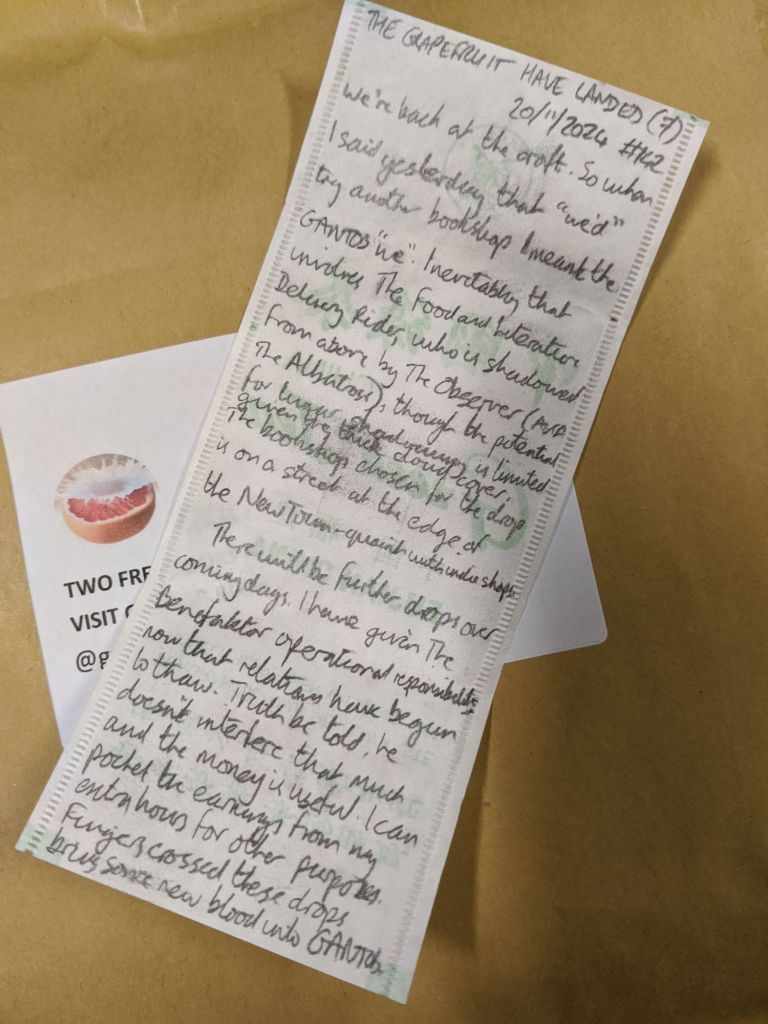 THE GRAPEFRUIT HAVE LANDED (7)
20/11/2024 #162
We're back at the croft. So when
I said yesterday that "we'd"
try another bookshop I meant the
GANTOB "we". Inevitably that
involves The Food and Literature
Delivery Rider, who is shadowed
from above by The Observer (AKA
The Albatross), though the potential
for lunar shadowing is limited
given the thick cloud cover.
The bookshop chosen for the drop
is on a street at the edge of
the New Town - quaint with indie shops.
There will be further drops over
coming days. I have given The
Benefaktor operational responsibility
now that relations have begun
to thaw. Truth be told, he
doesn't interfere that much
and the money is useful. I can
pocket the earnings from my
extra hours for other purposes.
Fingers crossed these drops
bring some new blood into GANTOB.
TWO FRE
VISIT
@g